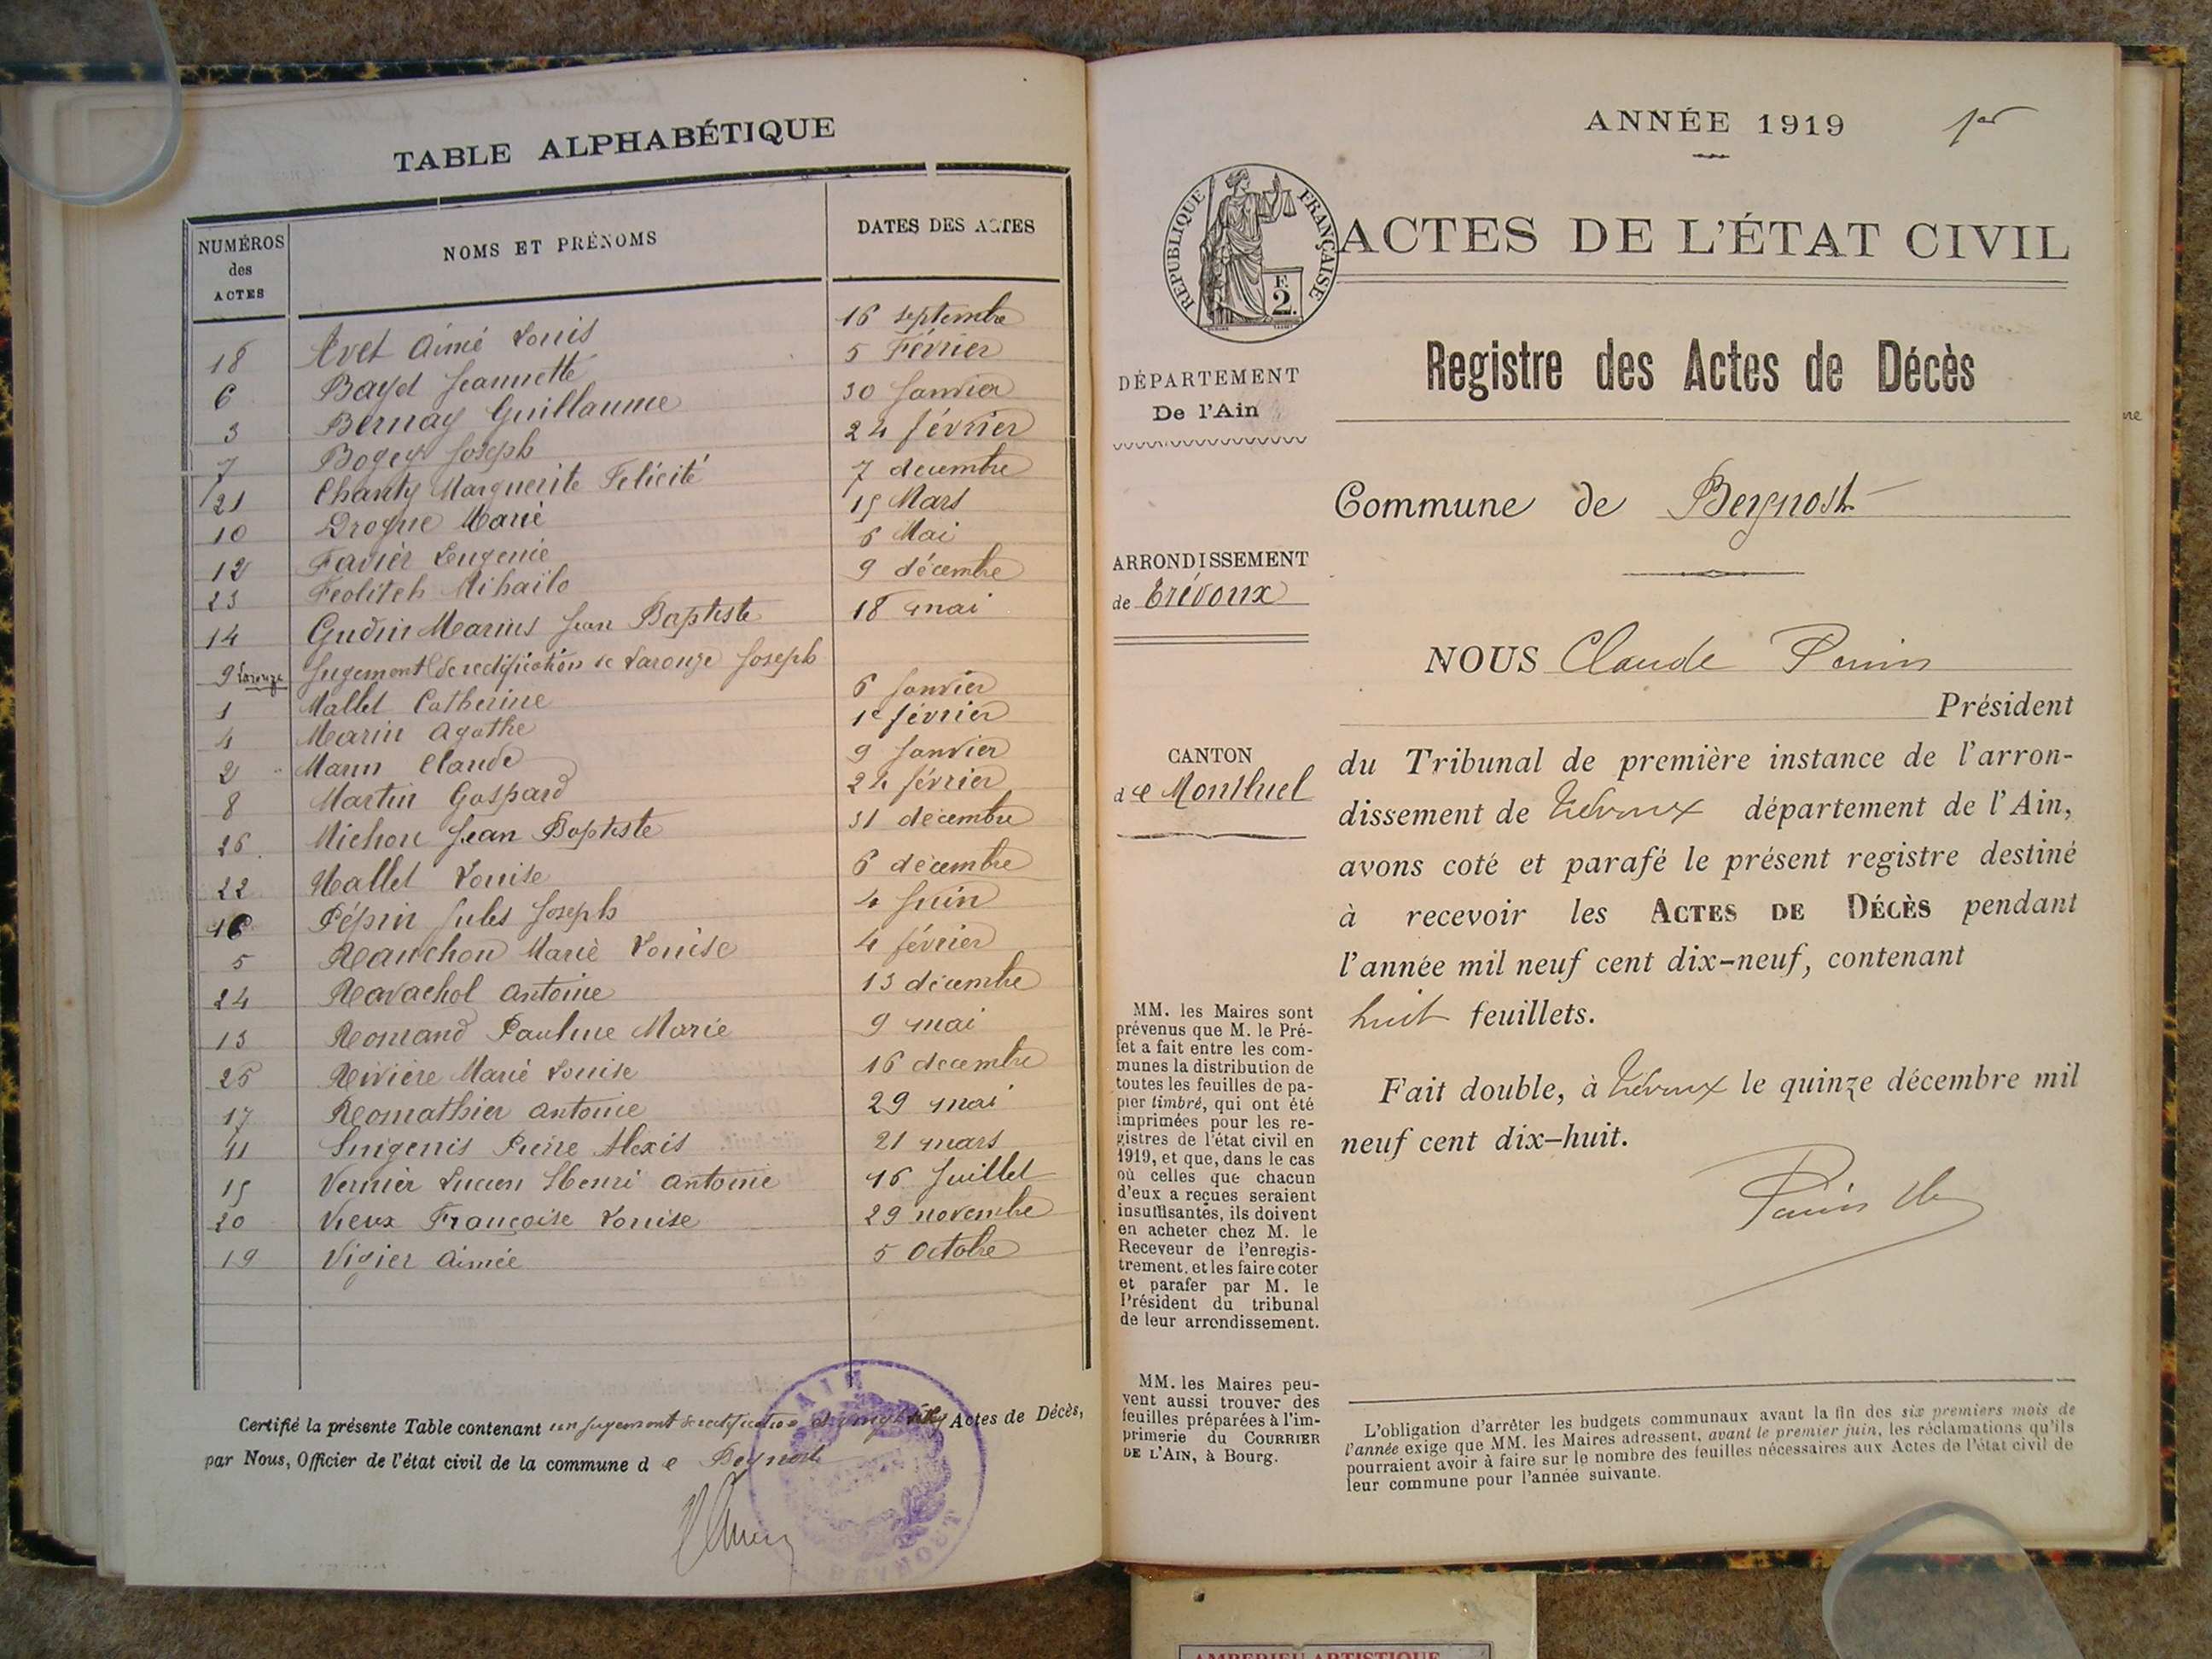 TABLE ALPHABÉTIQUE
NUMÉROS des ACTES NOMS ET PRÉNOMS DATES DES ACTES
18 Avet Aimé Louis 16 septembre
6 Bayet Jeannette 5 Février
3 Bernay Guillaume 30 Janvier
7 Bogey Joseph 24 février
21 Chanty Marguerite Félicité 7 decembre
10 Drogue Marie 15 Mars
12 Favier Eugenie 6 Mai
23 Feolitch Mihaïlo 9 décembre
14 Gudin Marius Jean Baptiste 18 mai
9 Larouze Jugement de rectification de Larouze Joseph
1 Mallet Catherine 6 Janvier
4 Marin Agathe 1e février
2 Marin Claude 9 Janvier
8 Martin Gaspard 24 février
26 Michon Jean Baptiste 31 décembre
22 Nallet Louise 6 décembre
16 Pépin Jules Joseph 4 Juin
5 Ranchon Marie Louise 4 février
24 Ravachol Antoine 13 décembre
13 Romand Pauline Marie 9 mai
25 Rivière Marie Louise 16 decembre
17 Romathier Antoine 29 mai
11 Pierre Alexis 21 mars
15 Vernier Lucien Henri Antoine 16 Juillet
20 Vieux Françoise Louise 29 novembre
19 Vigier Aimée 5 Octobre
Certifié la présente Table contenant un jugement de rectification Actes de Décès,
par Nous, Officier de l'état civil de la commune de Beynost
AIN
ANNÉE 1919 1er
RÉPUBLIQUE FRANÇAISE
F. 2.
ACTES DE L'ÉTAT CIVIL
Registre des Actes de Décès
DÉPARTEMENT
De l'Ain
Commune de Beynost
ARRONDISSEMENT
de Trévoux
NOUS Claude Perrin
Président
CANTON
de Montluel
du Tribunal de première instance de l'arron-
dissement de Trévoux département de l'Ain,
avons coté et parafé le présent registre destiné
à recevoir les ACTES DE DÉCÈS pendant
l'année mil neuf cent dix-neuf, contenant
huit feuillets.
Fait double, à Trévoux le quinze décembre mil
neuf cent dix-huit.
MM. les Maires sont
prévenus que M. le Pré-
fet a fait entre les com-
munes la distribution de
toutes les feuilles de pa-
pier timbré, qui ont été
imprimées pour les re-
gistres de l'état civil en
1919, et que, dans le cas
où celles que chacun
d'eux a reçues seraient
insuffisantes, ils doivent
en acheter chez M. le
Receveur de l'enregis-
trement, et les faire coter
et parafer par M. le
Président du tribunal
de leur arrondissement.
MM. les Maires peu-
vent aussi trouver des
feuilles préparées à l'im-
primerie du COURRIER
DE L'AIN, à Bourg.
L'obligation d'arrêter les budgets communaux avant la fin des six premiers mois de
l'année exige que MM. les Maires adressent, avant le premier juin, les réclamations qu'ils
pourraient avoir à faire sur le nombre des feuilles nécessaires aux Actes de l'état civil de
leur commune pour l'année suivante.
AMBERIEU ARTISTIQUE